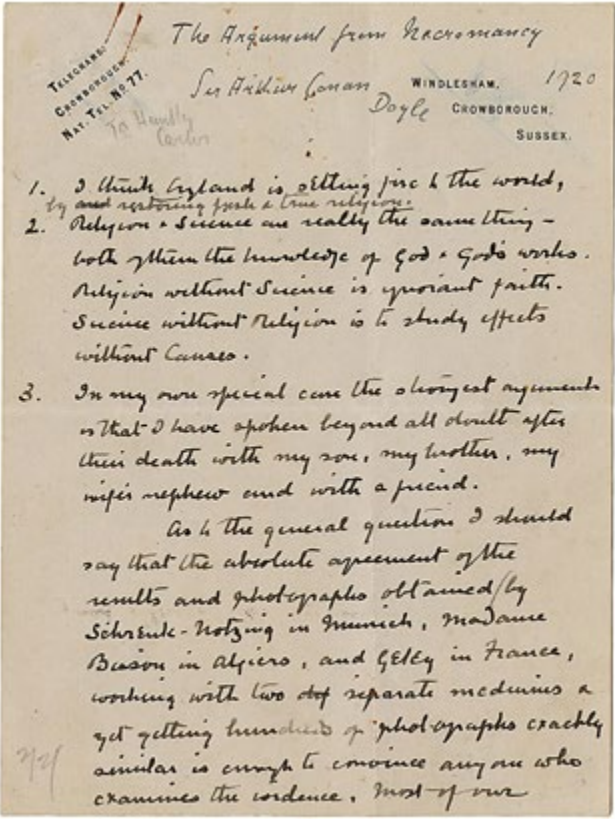 The Argument from Necromancy
TELEGRAMS:
CROWBOROUGH.
NAT. TEL. NO. 77.
Sir Arthur Conan
Doyle
WINDLESHAM,
CROWBOROUGH,
SUSSEX.
1920
To Huntly
Carter
1. I think England is setting fire to the world,
by and restoring fresh & true religion.
2. Religion & Science are really the same thing –
both of them the knowledge of God & God's works.
Religion without Science is ignorant faith.
Science without Religion is to study effects
without Causes.
3. In my own special case the strongest argument
is that I have spoken beyond all doubt after
their death with my son, my brother, my
wife's nephew and with a friend.
As to the general question I should
say that the absolute agreement of the
results and photographs obtained by
Schrenk-Notzing in Munich, Madame
Bisson in Algiers, and Geley in France,
working with two separate mediums &
yet getting hundreds of photographs exactly
similar is enough to convince anyone who
examines the evidence. Most of our